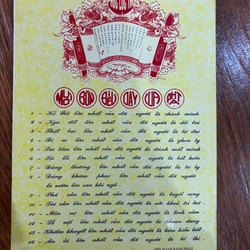 MƯỜI BỐN ĐIỀU DẠY CỦA
1 - Kẻ thù lớn nhất của đời người là chính mình
2 - Ngu dốt lớn nhất của đời người là dối trá
3 - Thất bại lớn nhất của đời người là tự đại
4 - Bi ai lớn nhất của đời người là ghen tỵ
5 - Sai lầm lớn nhất của đời người là đánh mất mình
6 - Tội lỗi lớn nhất của đời người là bất hiếu
7 - Đáng thương lớn nhất của đời người là tự ty
8 - Đáng khâm phục lớn nhất của đời người
là vươn lên sau khi ngã
9 - Phá sản lớn nhất của đời người là tuyệt vọng
10 - Tài sản lớn nhất của đời người là sức khoẻ, trí tuệ
11 - Món nợ lớn nhất của đời người là tình cảm
12 - Lễ vật lớn nhất của đời người là khoan dung
13 - Khiếm khuyết lớn nhất của đời người là kém hiểu biết
14 - An ủi lớn nhất của đời người là bố thí